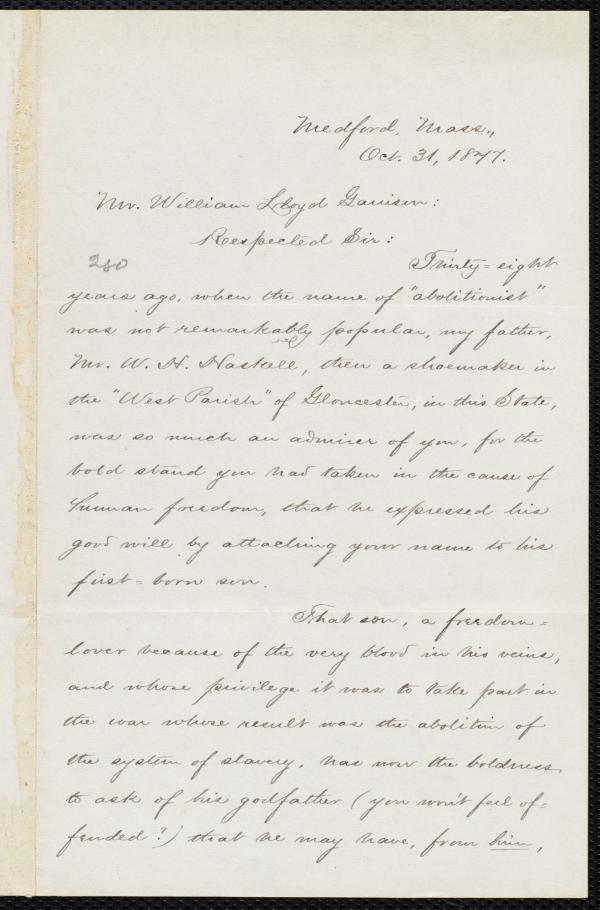 Medford, Mass.,
Oct. 31, 1877.
Mr. William Lloyd Garrison:
Respected Sir:
280
Thirty=eight
years ago, when the name of "abolitionist"
was not remarkably popular, my father,
Mr. W. H. Haskell, then a shoemaker in
the "West Parish" of Gloucester, in this State,
was so much an admirer of you, for the
bold stand you had taken in the cause of
human freedom, that he expressed his
good will by attaching your name to his
first=born son.
That son, a freedom=
lover because of the very blood in his veins,
and whose privilege it was to take part in
the war whose result was the abolition of
the system of slavery, has now the boldness
to ask of his godfather (you won't feel of=
fended?) that he may have, from him,